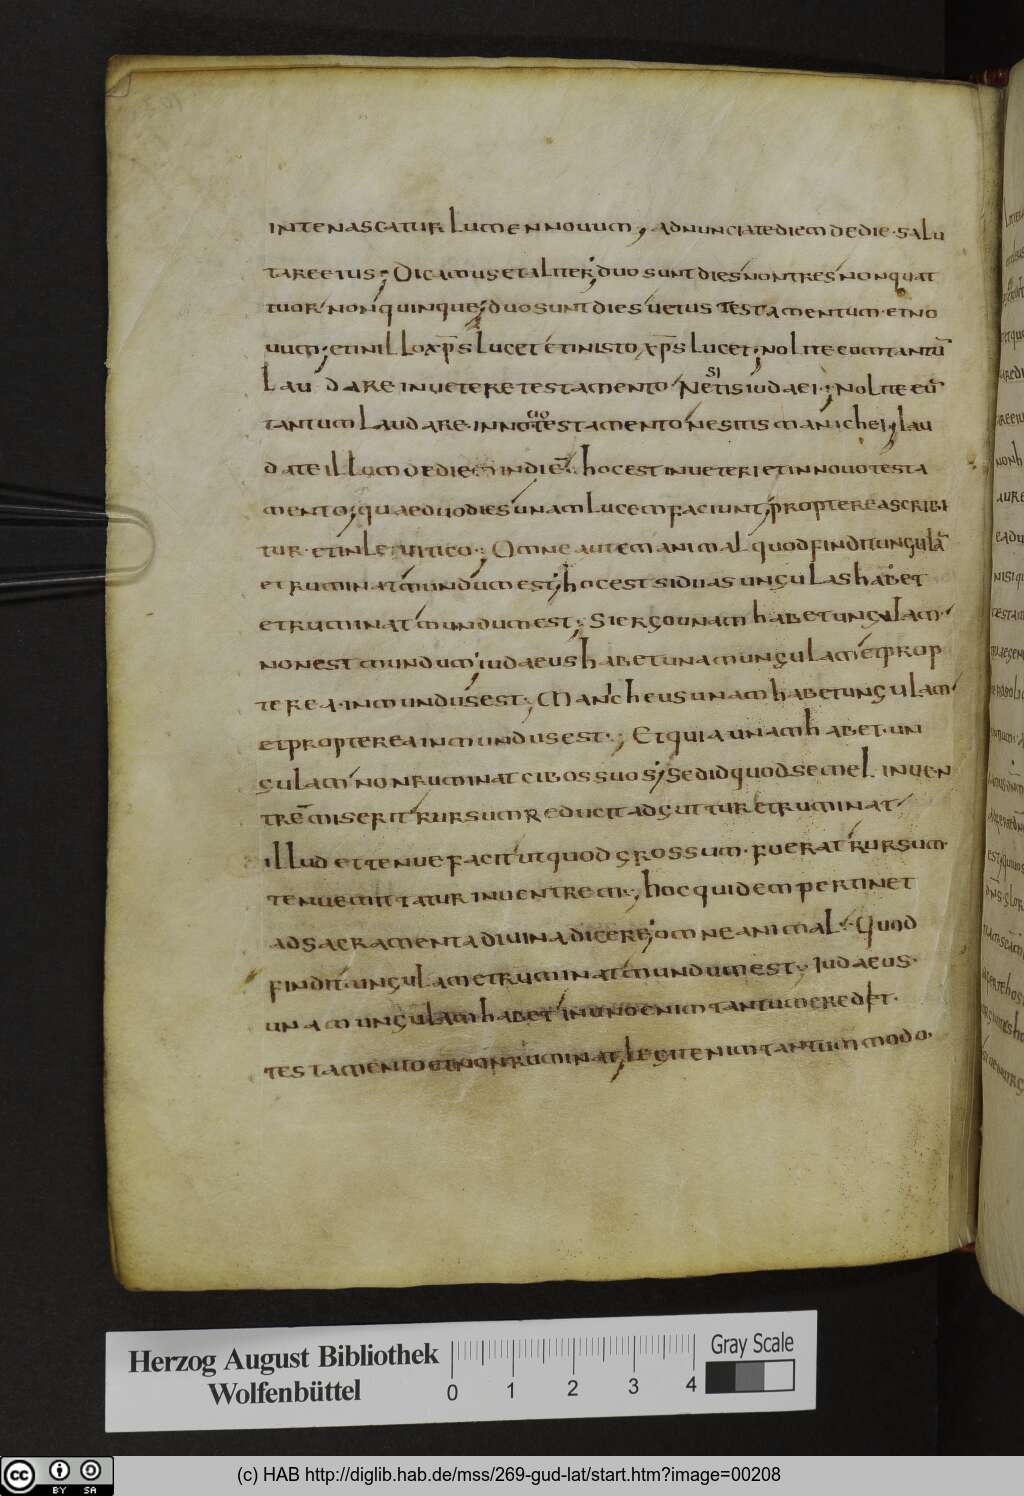 in te nascatur lumen novum, adnunciate diem de die · salu
tare eius; Dicamus et aliter; duo sunt dies non tres non quat
tuor non quinque; duo sunt dies uetus testamentum · et no
uum; et in illo xp̄s lucet et in isto xp̄s lucet; nolite eum tantū
lau dare in uetere testamento Ne sitis iudaei; Nolite eū
tantum laudare · in nouo testamento ne sitis manichei, lau
date illum de die in diē · hoc est in ueteri et in nouo testa
mento; quae duo dies unam lucem faciunt; propterea scribi
tur · et in leuitico; Omne autem animal quod findit ungulā
et ruminat mundum est; hoc est si duas ungulas habet
et ruminat mundum est; Si ergo unam habet ungulam ·
non est mundum; iudaeus habet unam ungulam et prop
terea · inmundus est; Manicheus unam habet ungulam
et propterea inmundus est · ; Et quia unam habet · un
gulam non ruminat cibos suos; Sed id quod semel in uen
trē miserit rursum reducit ad guttur et ruminat
illud et tenue facit ut quod grossum · fuerat rursum ·
tenue mittatur in uentrem ·, hoc quidem pertinet
ad sacramenta diuina dicere; omne animal · Quod
findit ungulam et ruminat mundum est; Iudaeus ·
unam ungulam habet in uno enim tantum credet ·
testamento et non ruminat; legit enim tantum modo ·
Herzog August Bibliothek
Wolfenbüttel
0 1 2 3 4
Gray Scale
cc BY SA
(c) HAB http://diglib.hab.de/mss/269-gud-lat/start.htm?image=00208